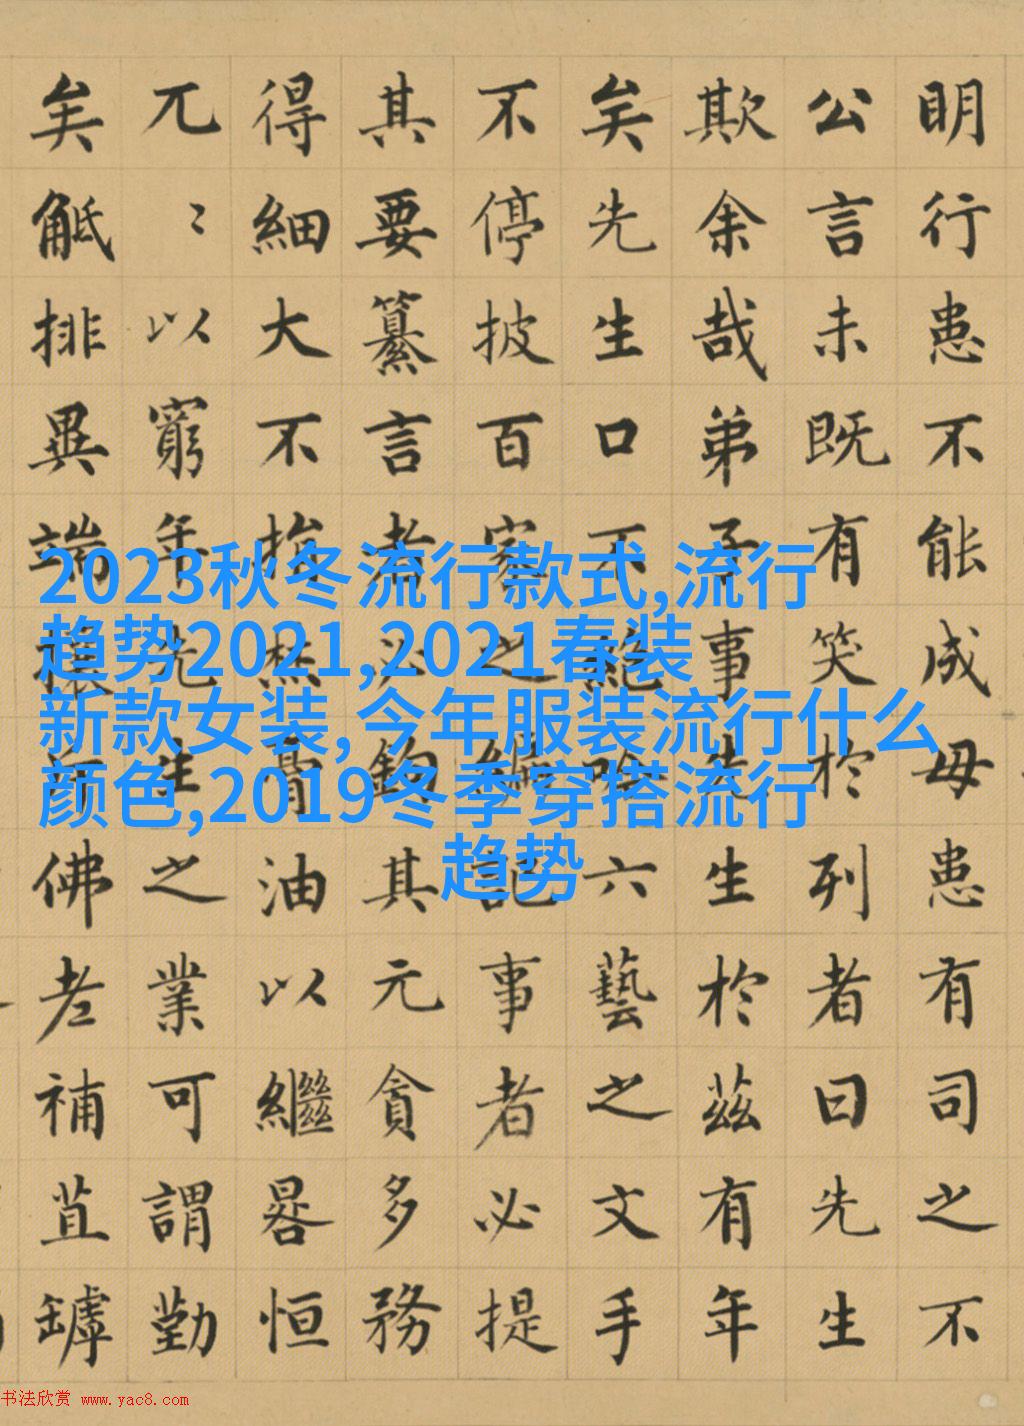 明行患不能成毋患有司之不
公言未既有笑於列者曰先生
欺余哉弟子事先生於茲有年
矣先生口不絕吟六藝之文手
不停披百家之編記事者必提
其要纂言者必鈎其元貪多務
得細大不捐焚膏油以繼晷恒
兀〻以窮年先生之業可謂勤
矣觝排異端攘斥佛老補苴罅
2023秋冬流行款式,流行
趋势2021,2021春装
新款女装,今年服装流行什么
颜色,2019冬季穿搭流行
趋势
书法欣赏 www.yac8.com